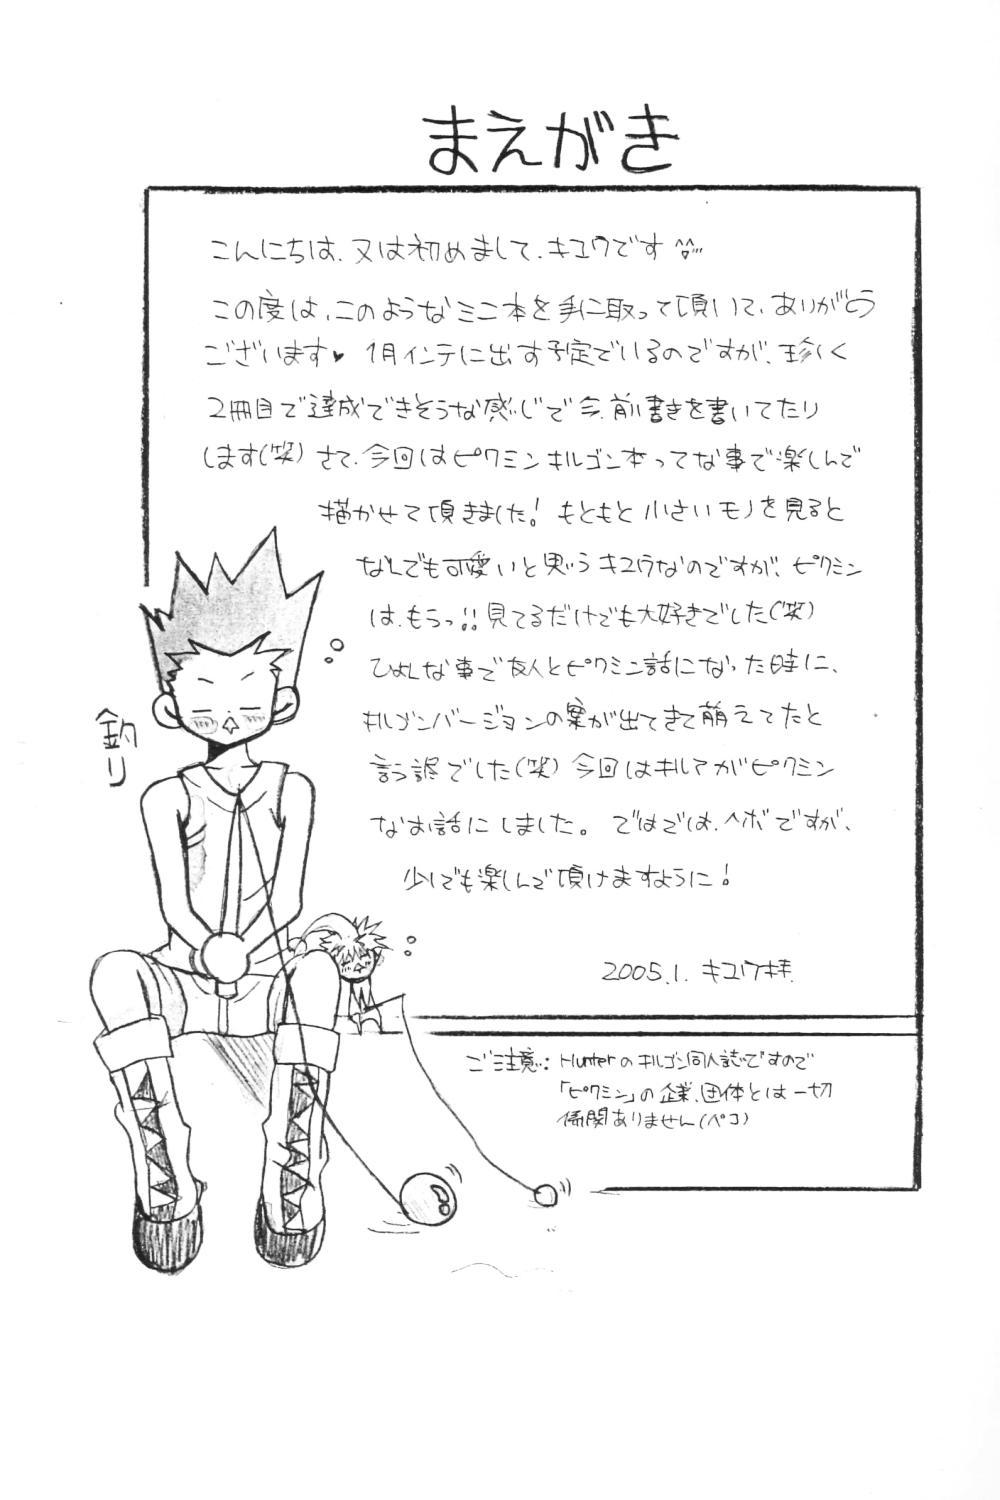 まえがき
こんにちは、又は初めまして、キユウです^^;;;
この度は、このようなミニ本を手に取って頂いて、ありがとう
ございます♥ 1月インテに出す予定でいるのですが、珍しく
2冊目で達成できそうな感じで今、前書きを書いてたり
します(笑) さて、今回はピクミンキルゴン本ってな事で楽しんで
描かせて頂きました! もともと小さいモノを見ると
なんでも可愛いと思うキユウなのですが、ピクミン
は、もうっ!!見てるだけでも大好きでした(笑)
ひょんな事で友人とピクミン話になった時に、
キルゴンバージョンの案が出てきて萌えてたと
言う訳でした(笑) 今回はキルアがピクミン
なお話にしました。ではでは、ヘボですが、
少しでも楽しんで頂けますように!
2005.1. キユウキ
釣り
ご注意: Hunterのキルゴン同人誌ですので
「ピクミン」の企業、団体とは一切
係関ありません(ペコ)